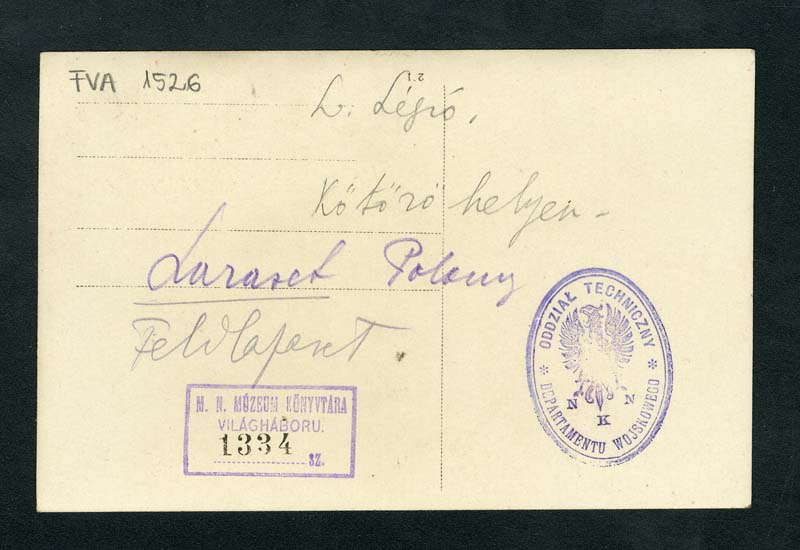 FVA 1526
21
L. Légió,
Kőtörő helyen -
Lazaret Polowy
Feldlazaret.
M. N. MÚZEUM KÖNYVTÁRA
VILÁGHÁBORU.
1334 SZ.
ODDZIAŁ TECHNICZNY
* DEPARTAMENTU WOJSKOWEGO *
N K N